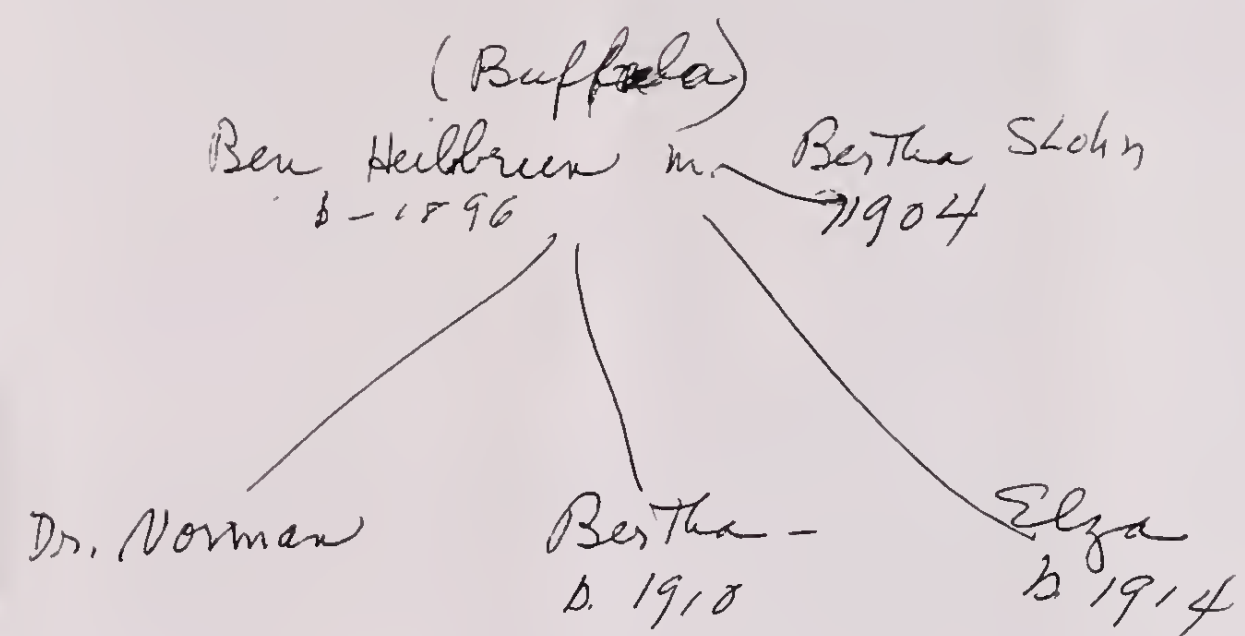 (Buffala)
Ben Heilbrun m. Bertha Slohn
b - 1896 1904
Dr. Norman Bertha - Elza
b. 1910 b. 1914